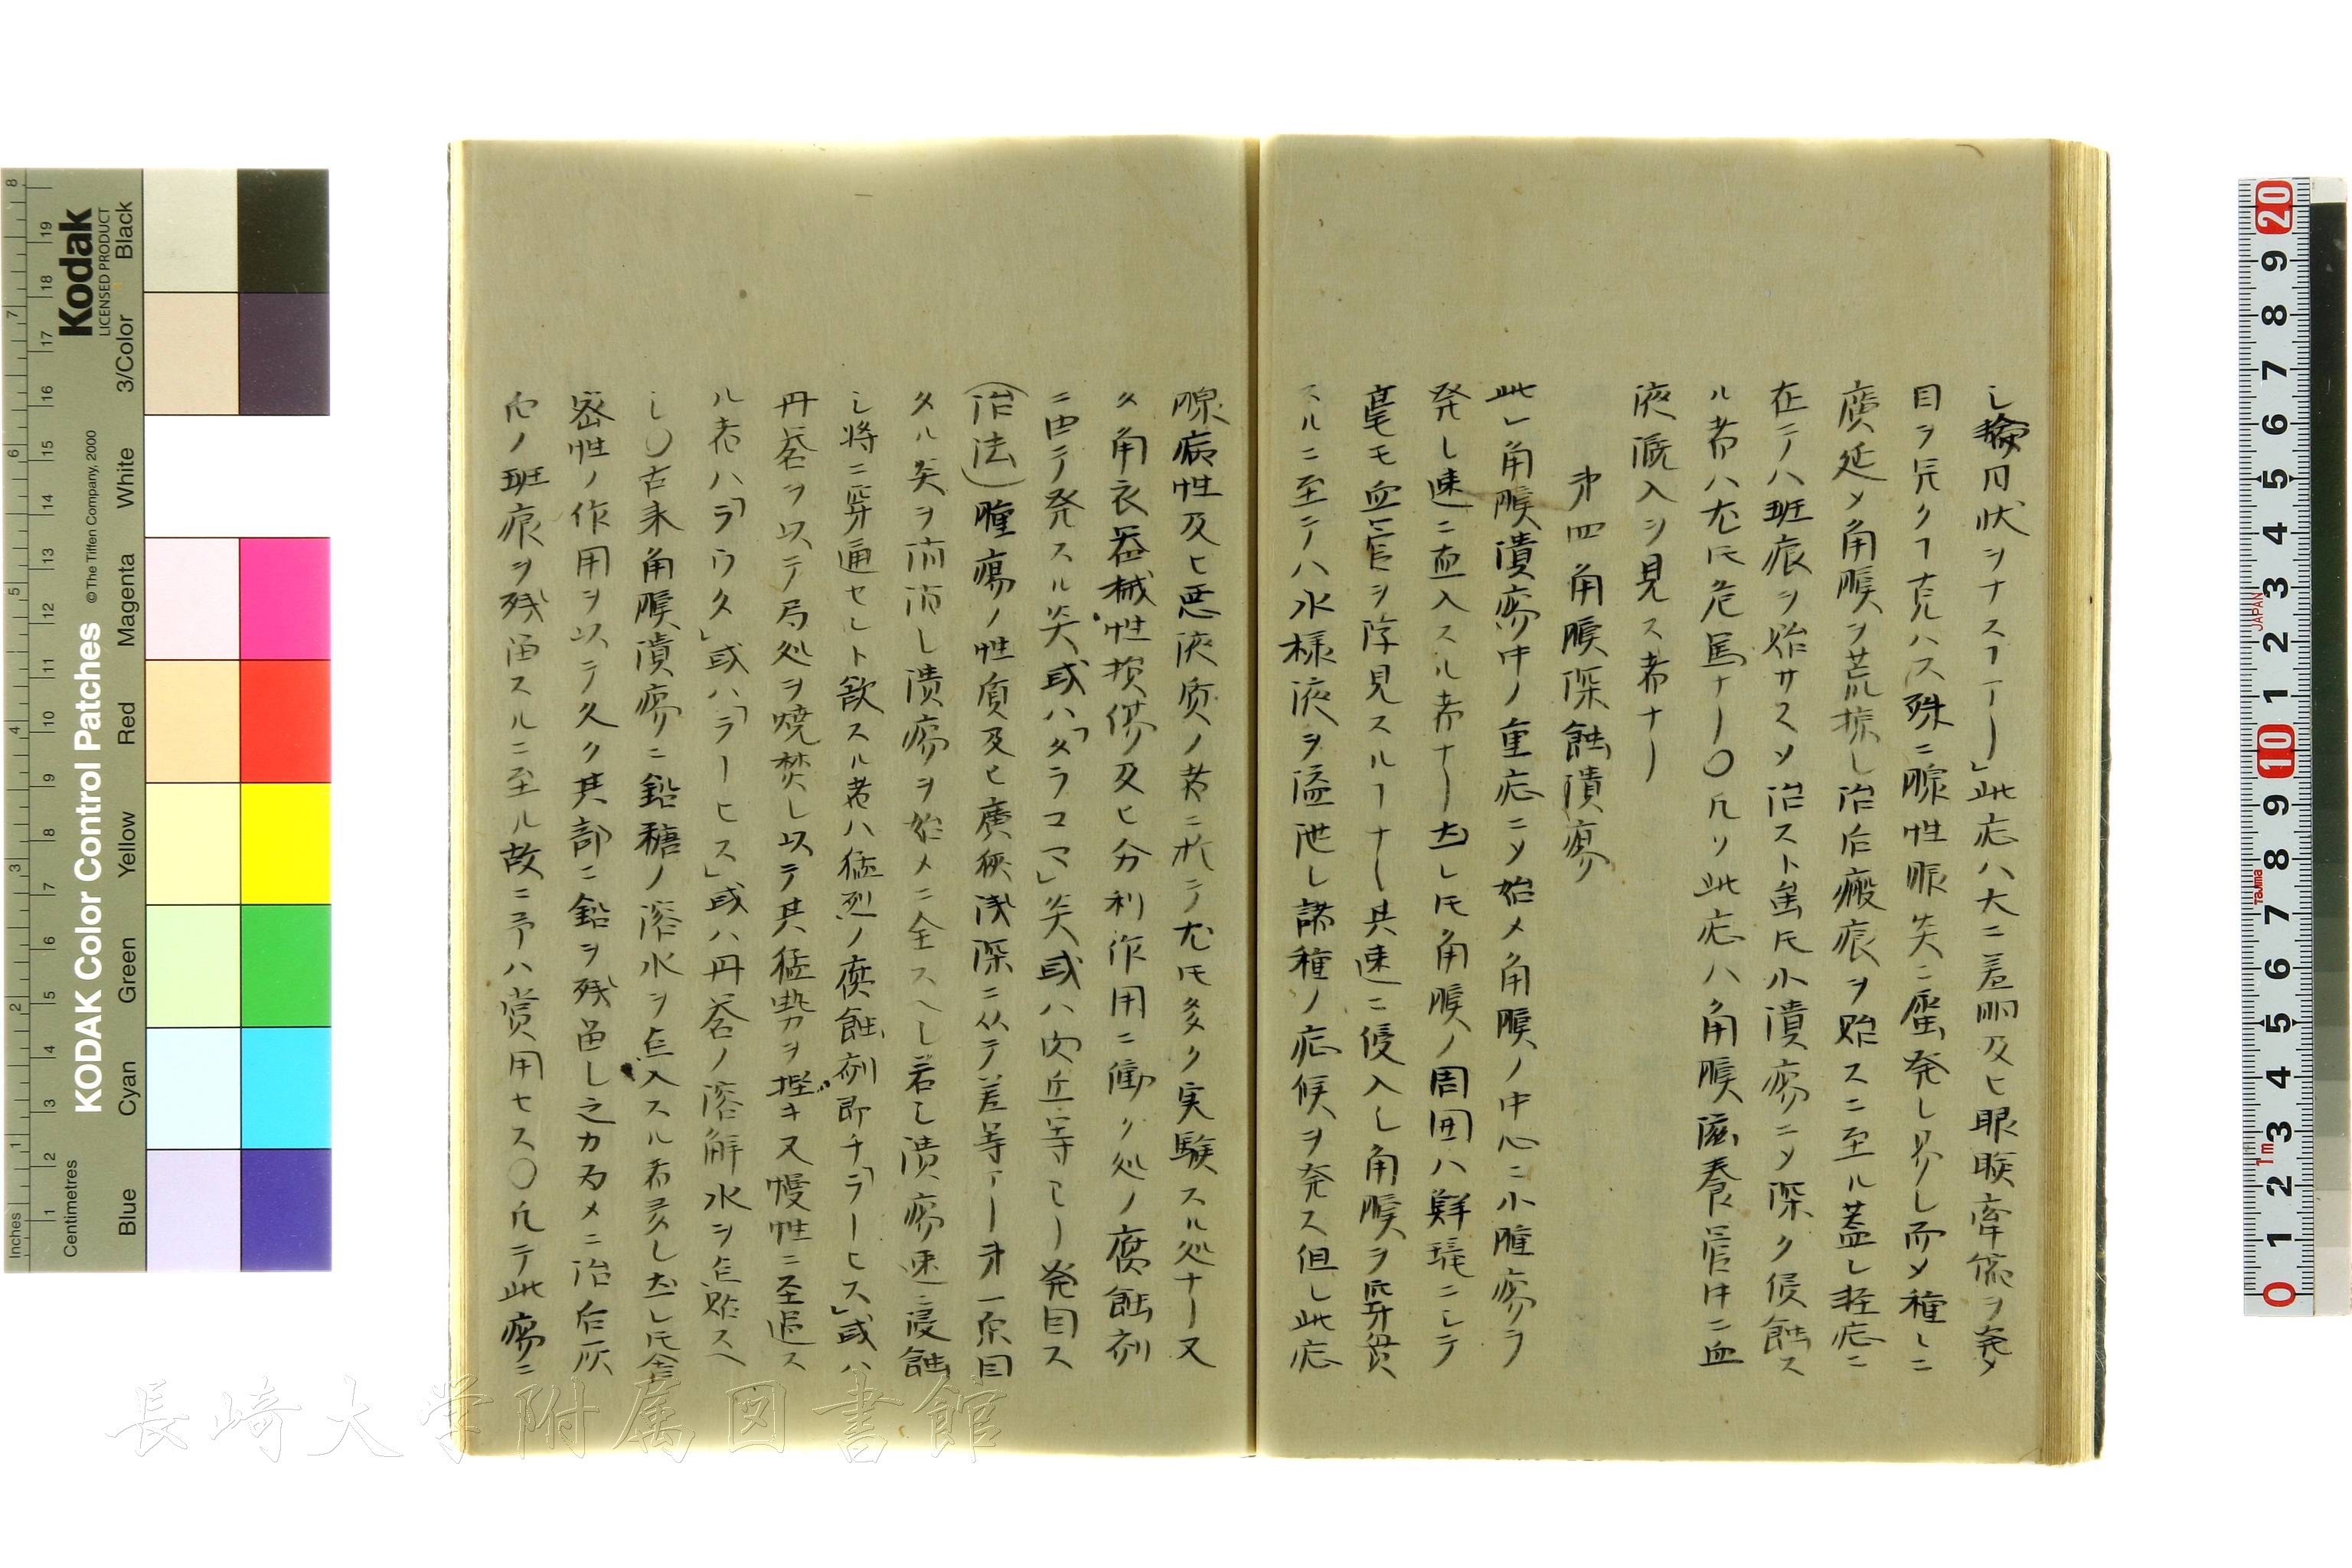 シ輪月状ヲナスヿアリ」此症ハ大ニ羞明及ヒ眼瞼牽縮ヲ発メ
目ヲ開クヿ克ハス殊ニ腺性眼炎ニ層発シ易シ而メ種々ニ
廣延メ角膜ヲ荒掠シ治后瘢痕ヲ貽スニ至ル蓋シ軽症ニ
在テハ斑痕ヲ貽サスメ治スト雖𪜈小潰瘍ニメ深ク侵蝕ス
ル者ハ尤𪜈危篤ナリ〇凡ソ此症ハ角膜滋養管中ニ血
液漑入ヲ見ス者ナリ
第四角膜深蝕潰瘍
此レ角膜潰瘍中ノ重症ニメ始メ角膜ノ中心ニ小腫瘍ヲ
発シ速ニ血入スル者ナリ然レ𪜈角膜ノ周囲ハ鮮瑩ニシテ
毫モ血管ヲ浮見スルヿナシ其速ニ侵入シ角膜ヲ穿貫
スルニ至テハ水様液ヲ溢泄シ諸種ノ症候ヲ発ス但シ此症
腺病性及ヒ悪液質ノ者ニ於テ尤𪜈多ク実験スル処ナリ又
タ角衣器械性損傷及ヒ分利作用ニ働ク処ノ腐蝕剤
ニ由テ発スル炎或ハ「タラコマ」炎或ハ内丘等ヨリ発目ス
(治法)腫瘍ノ性質及ヒ廣狭浅深ニ从テ差等アリ第一原因
タル炎ヲ消而シ潰瘍ヲ始メニ全スヘシ若シ潰瘍速ニ侵蝕
シ将ニ穿通セント欲スル者ハ猛烈ノ腐蝕剤即チ「ラーヒス」或ハ
丹礬ヲ以テ局処ヲ焼焚シ以テ其猛勢ヲ挫キ又慢性ニ至追ス
ル者ハ「ラウタ」或ハ「ラーヒス」或ハ丹礬ノ溶解水ヲ点貼スヘ
シ〇古来角膜潰瘍ニ鉛糖ノ溶水ヲ点入スル者多シ然レ𪜈舎
密性ノ作用ヲ以テ久ク其部ニ鉛ヲ残留シ之カ为メニ治后灰
色ノ斑痕ヲ残留スルニ至ル故ニ予ハ賞用セス〇凡テ此瘍ニ
長崎大学附属図書館
Kodak
LICENSED PRODUCT
KODAK Color Control Patches
© The Tiffen Company, 2000
Inches
Centimetres
Blue
Cyan
Green
Yellow
Red
Magenta
White
3/Color
Black
JAPAN
Tajima
1m